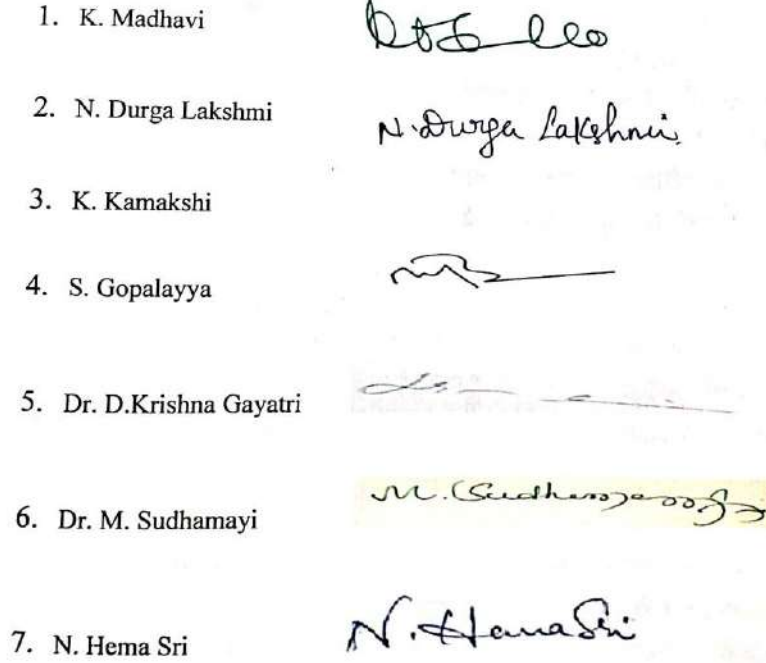 1. K. Madhavi
2. N. Durga Lakshmi N. Durga Lakshmi.
3. K. Kamakshi
4. S. Gopalayya
5. Dr. D.Krishna Gayatri
6. Dr. M. Sudhamayi
7. N. Hema Sri N. Hema Sri